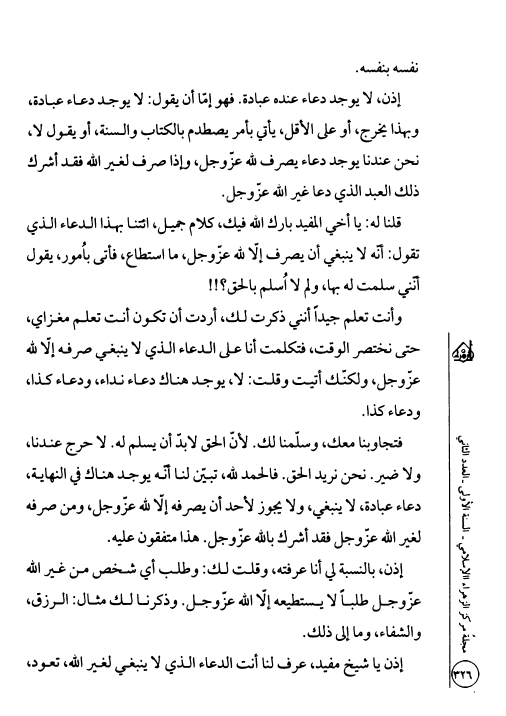 نفسه بنفسه.
إذن، لا يوجد دعاء عنده عبادة. فهو إمّا أن يقول: لا يوجد دعاء عبادة،
وبهذا يخرج، أو على الأقل، يأتي بأمر يصطدم بالكتاب والسنة، أو يقول لا،
نحن عندنا يوجد دعاء يصرف لله عزّوجل، وإذا صرف لغير الله فقد أشرك
ذلك العبد الذي دعا غير الله عزّوجل.
قلنا له: يا أخي المفيد بارك الله فيك، كلام جميل، ائتنا بهذا الدعاء الذي
تقول: أنّه لا ينبغي أن يصرف إلّا لله عزّوجل، ما استطاع، فأتى بأمور، يقول
أنّني سلمت له بها، ولم لا أسلم بالحق؟!!
وأنت تعلم جيداً أنني ذكرت لك، أردت أن تكون أنت تعلم مغزاي،
حتى نختصر الوقت، فتكلمت أنا على الدعاء الذي لا ينبغي صرفه إلّا لله
عزّوجل، ولكنّك أتيت وقلت: لا، يوجد هناك دعاء نداء، ودعاء كذا،
ودعاء كذا.
فتجاوبنا معك، وسلّمنا لك. لأنّ الحق لابدّ أن يسلم له. لا حرج عندنا،
ولا ضير. نحن نريد الحق. فالحمد لله، تبيّن لنا أنّه يوجد هناك في النهاية،
دعاء عبادة، لا ينبغي، ولا يجوز لأحد أن يصرفه إلّا لله عزّوجل، ومن صرفه
لغير الله عزّوجل فقد أشرك بالله عزّوجل. هذا متفقون عليه.
إذن، بالنسبة لي أنا عرفته، وقلت لك: وطلب أي شخص من غير الله
عزّوجل طلباً لا يستطيعه إلّا الله عزّوجل. وذكرنا لك مثال: الرزق،
والشفاء، وما إلى ذلك.
إذن يا شيخ مفيد، عرف لنا أنت الدعاء الذي لا ينبغي لغير الله، تعود،
مجلة مركز الزهراء الإسلامي - السنة الأولى - العدد الثاني
٣٢٦